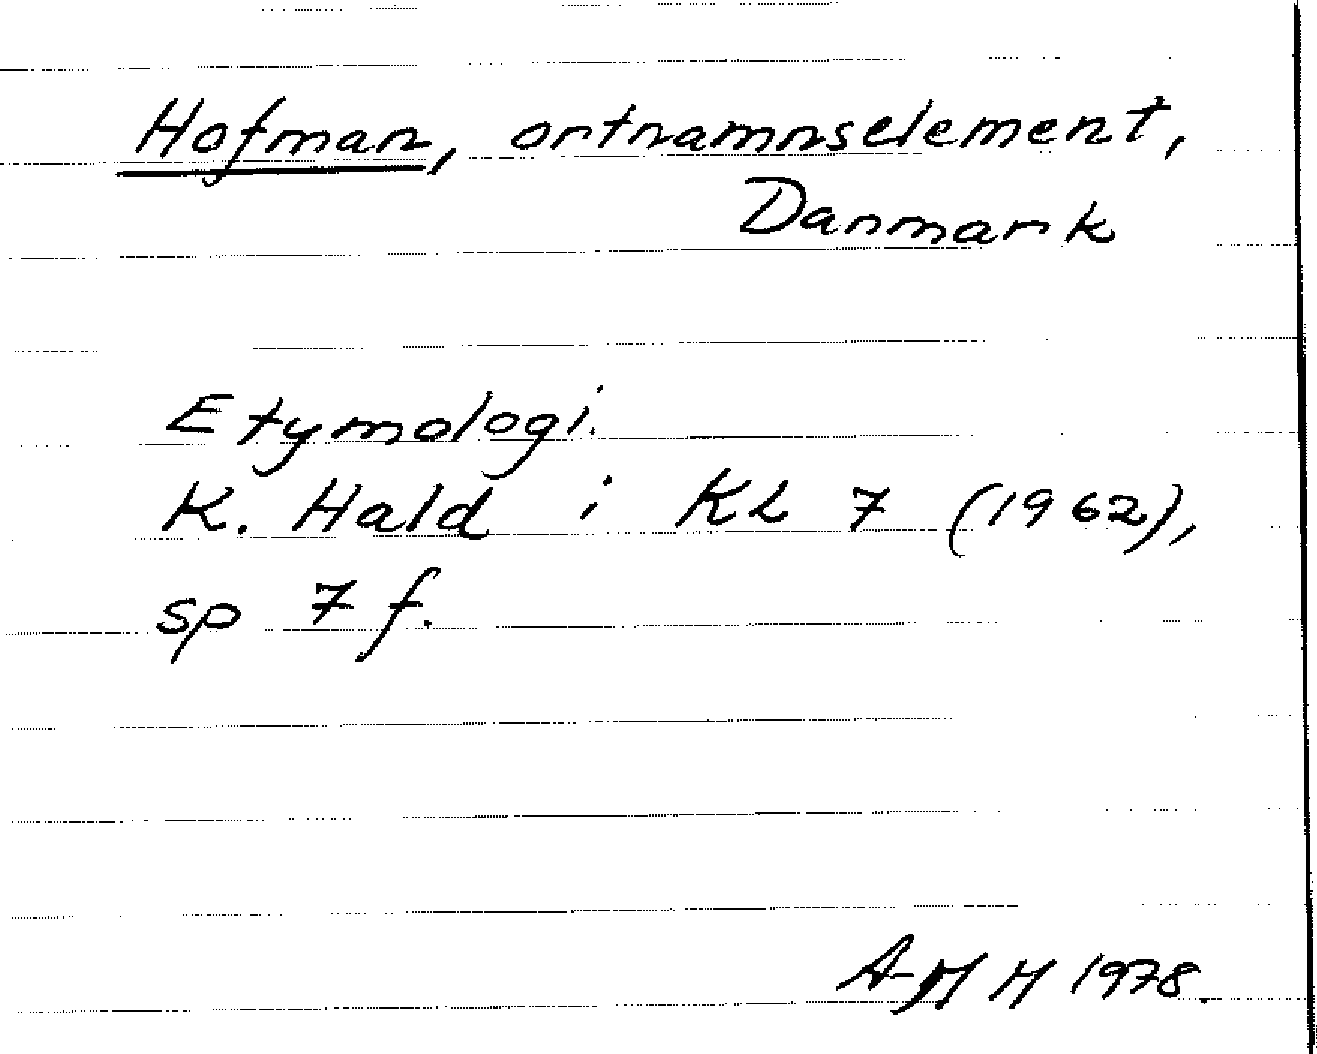 Hofman, ortnamnselement,
Danmark
Etymologi.
K. Hald i KL 7 (1962),
sp 7 f.
A-M H 1978.